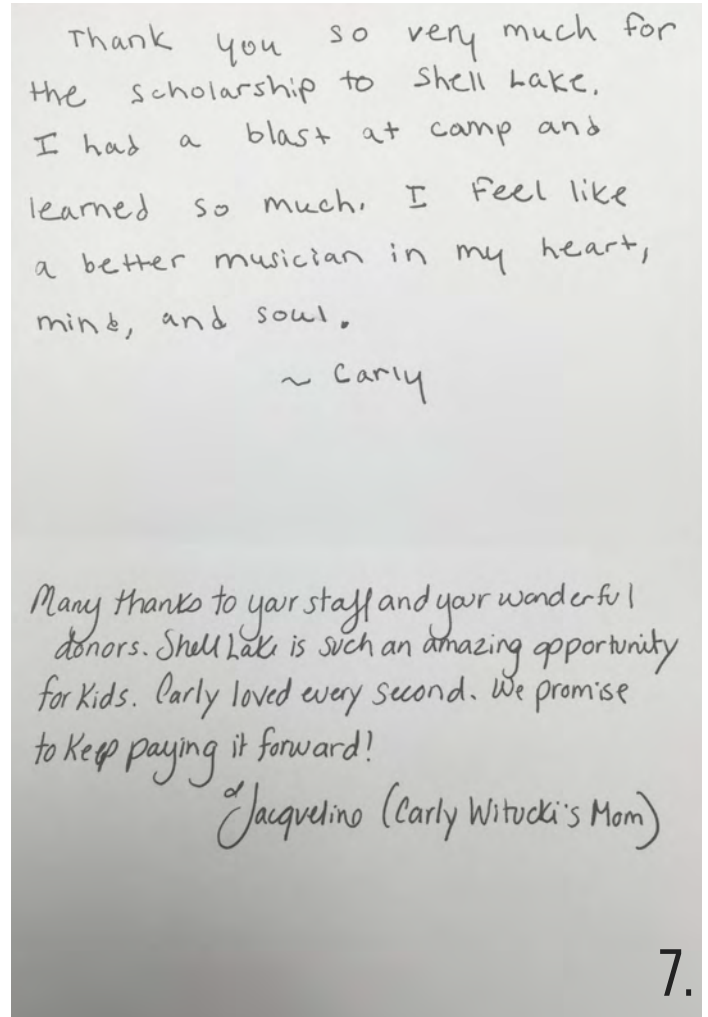 Thank you so very much for
the scholarship to Shell Lake.
I had a blast at camp and
learned so much. I feel like
a better musician in my heart,
mind, and soul.
~ Carly
Many thanks to your staff and your wonderful
donors. Shell Lake is such an amazing opportunity
for kids. Carly loved every second. We promise
to keep paying it forward!
Jacqueline (Carly Witucki's Mom)
7.